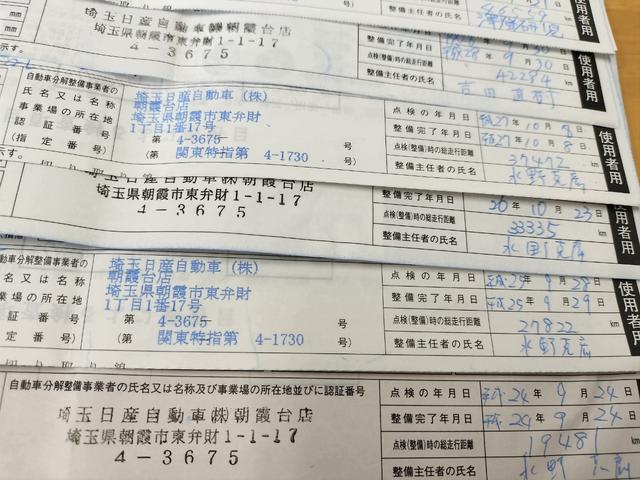 46569 km
使用者用
埼玉日産自動車㈱朝霞台店
埼玉県朝霞市東弁財1-1-17
4-3675
整備完了年月日 平成28年 9月 30日
点検(整備)時の総走行距離 42284 km
整備主任者の氏名
使用者用
自動車分解整備事業者の
氏名又は名称
事業場の所在地
認証番号
(指定番号)
埼玉日産自動車(株)
朝霞台店
埼玉県朝霞市東弁財
1丁目1番17号
(第 4-3675 号
(第 関東特指第 4-1730 号
点検の年月日 平成27年 10月 8日
整備完了年月日 平成27年 10月 8日
点検(整備)時の総走行距離 37472 km
整備主任者の氏名 水野克広
使用者用
埼玉日産自動車㈱朝霞台店
埼玉県朝霞市東弁財1-1-17
4-3675
整備完了年月日 26年 10月 23日
点検(整備)時の総走行距離 33335 km
整備主任者の氏名 水野克広
使用者用
自動車分解整備事業者の
氏名又は名称
事業場の所在地
認証番号
定番号)
埼玉日産自動車(株)
朝霞台店
埼玉県朝霞市東弁財
1丁目1番17号
4-3675 号
(第 関東特指第 4-1730 号
点検の年月日 平成25年 9月 28日
整備完了年月日 平成25年 9月 29日
点検(整備)時の総走行距離 27822 km
整備主任者の氏名 水野克広
使用者用
切り取り線
自動車分解整備事業者の氏名又は名称及び事業場の所在地並びに認証番号
埼玉日産自動車㈱朝霞台店
埼玉県朝霞市東弁財1-1-17
4-3675
点検の年月日 平成24年 9月 24日
整備完了年月日 平成24年 9月 24日
点検(整備)時の総走行距離 19481 km
整備主任者の氏名 水野克広
使用者用